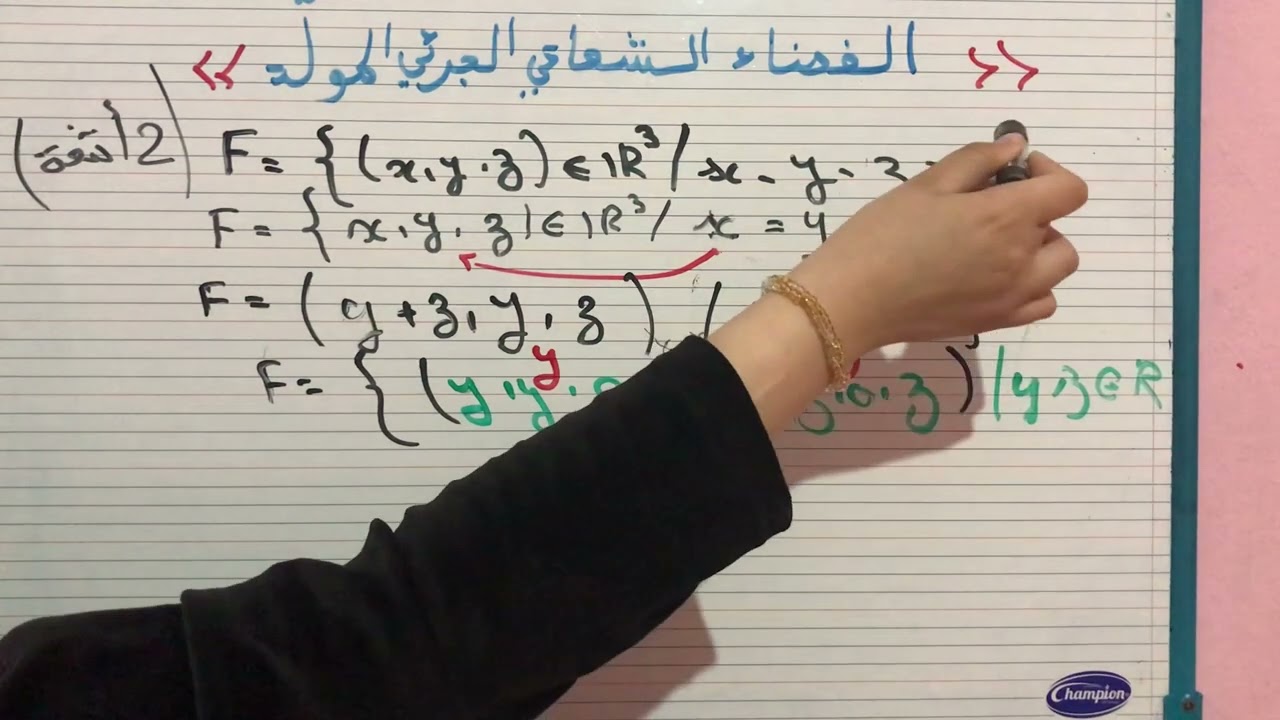 << الفضاء الشعاعي الجزئي المولّد >>
(2 أمثلة)
F = { (x, y, z) ∈ IR³ / x - y - z =
F = { x, y, z) ∈ IR³ / x = y
F = (y + z, y, z) /
y
F = { (y, y, 0 z, 0, z) / y, z ∈ R
Champion